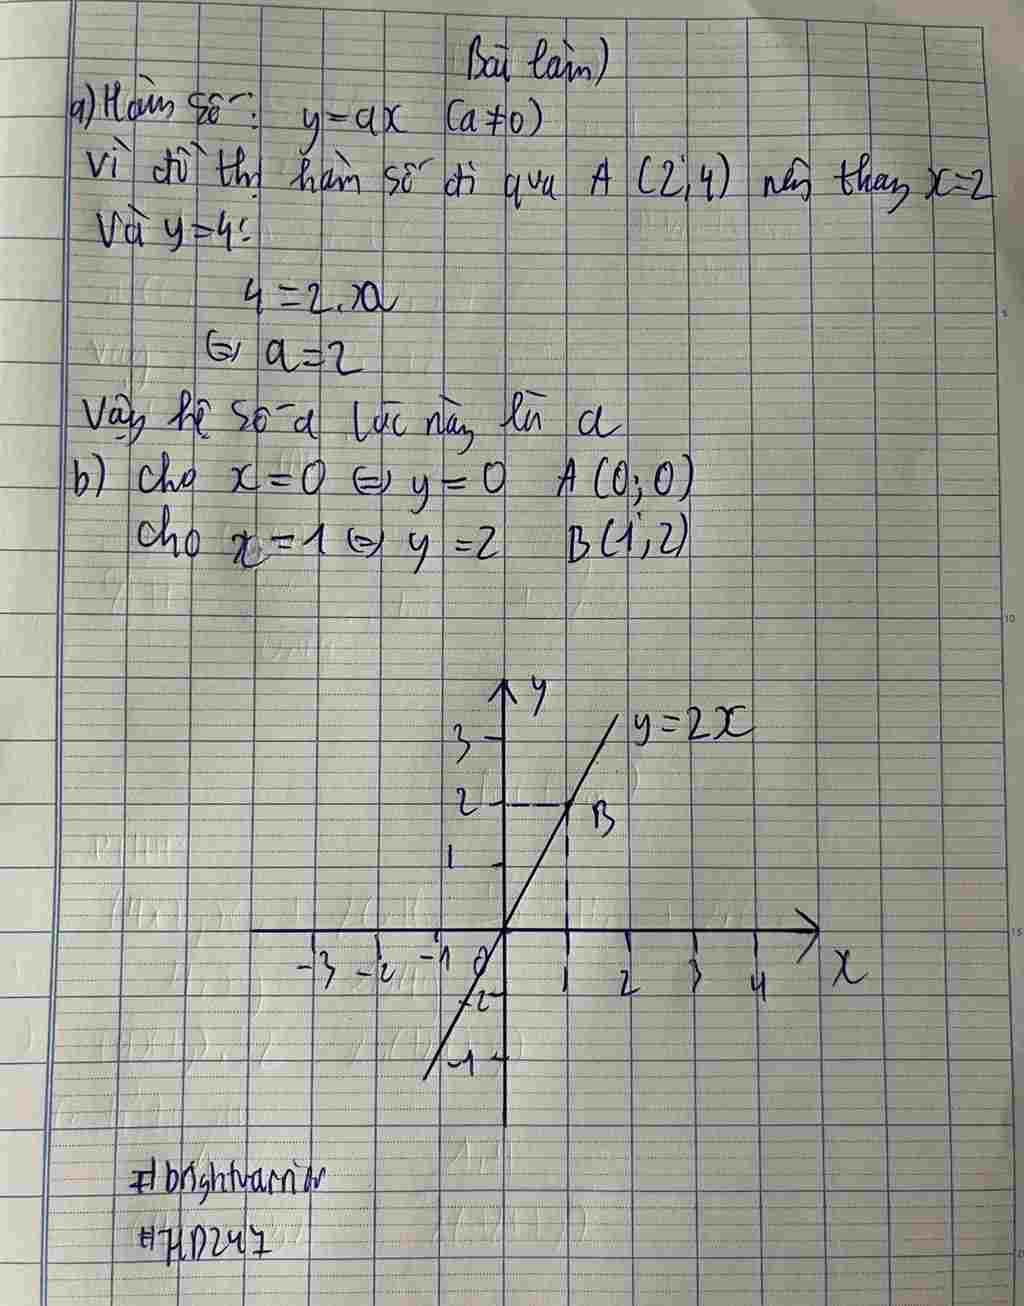 Bài làm)
a) Hàm số: y=ax (a≠0)
Vì đồ thị hàm số đi qua A (2;4) nên thay x=2
Và y=4:
4=2.a
⇔ a=2
Vậy hệ số a lúc này là a
b) Cho x=0 ⇔ y=0 A(0;0)
Cho x=1 ⇔ y=2 B(1;2)
y
3
y=2x
2
B
1
-3 -2 -1 0 1 2 3 4 x
-2
-1
#brightwarrior
#HD247